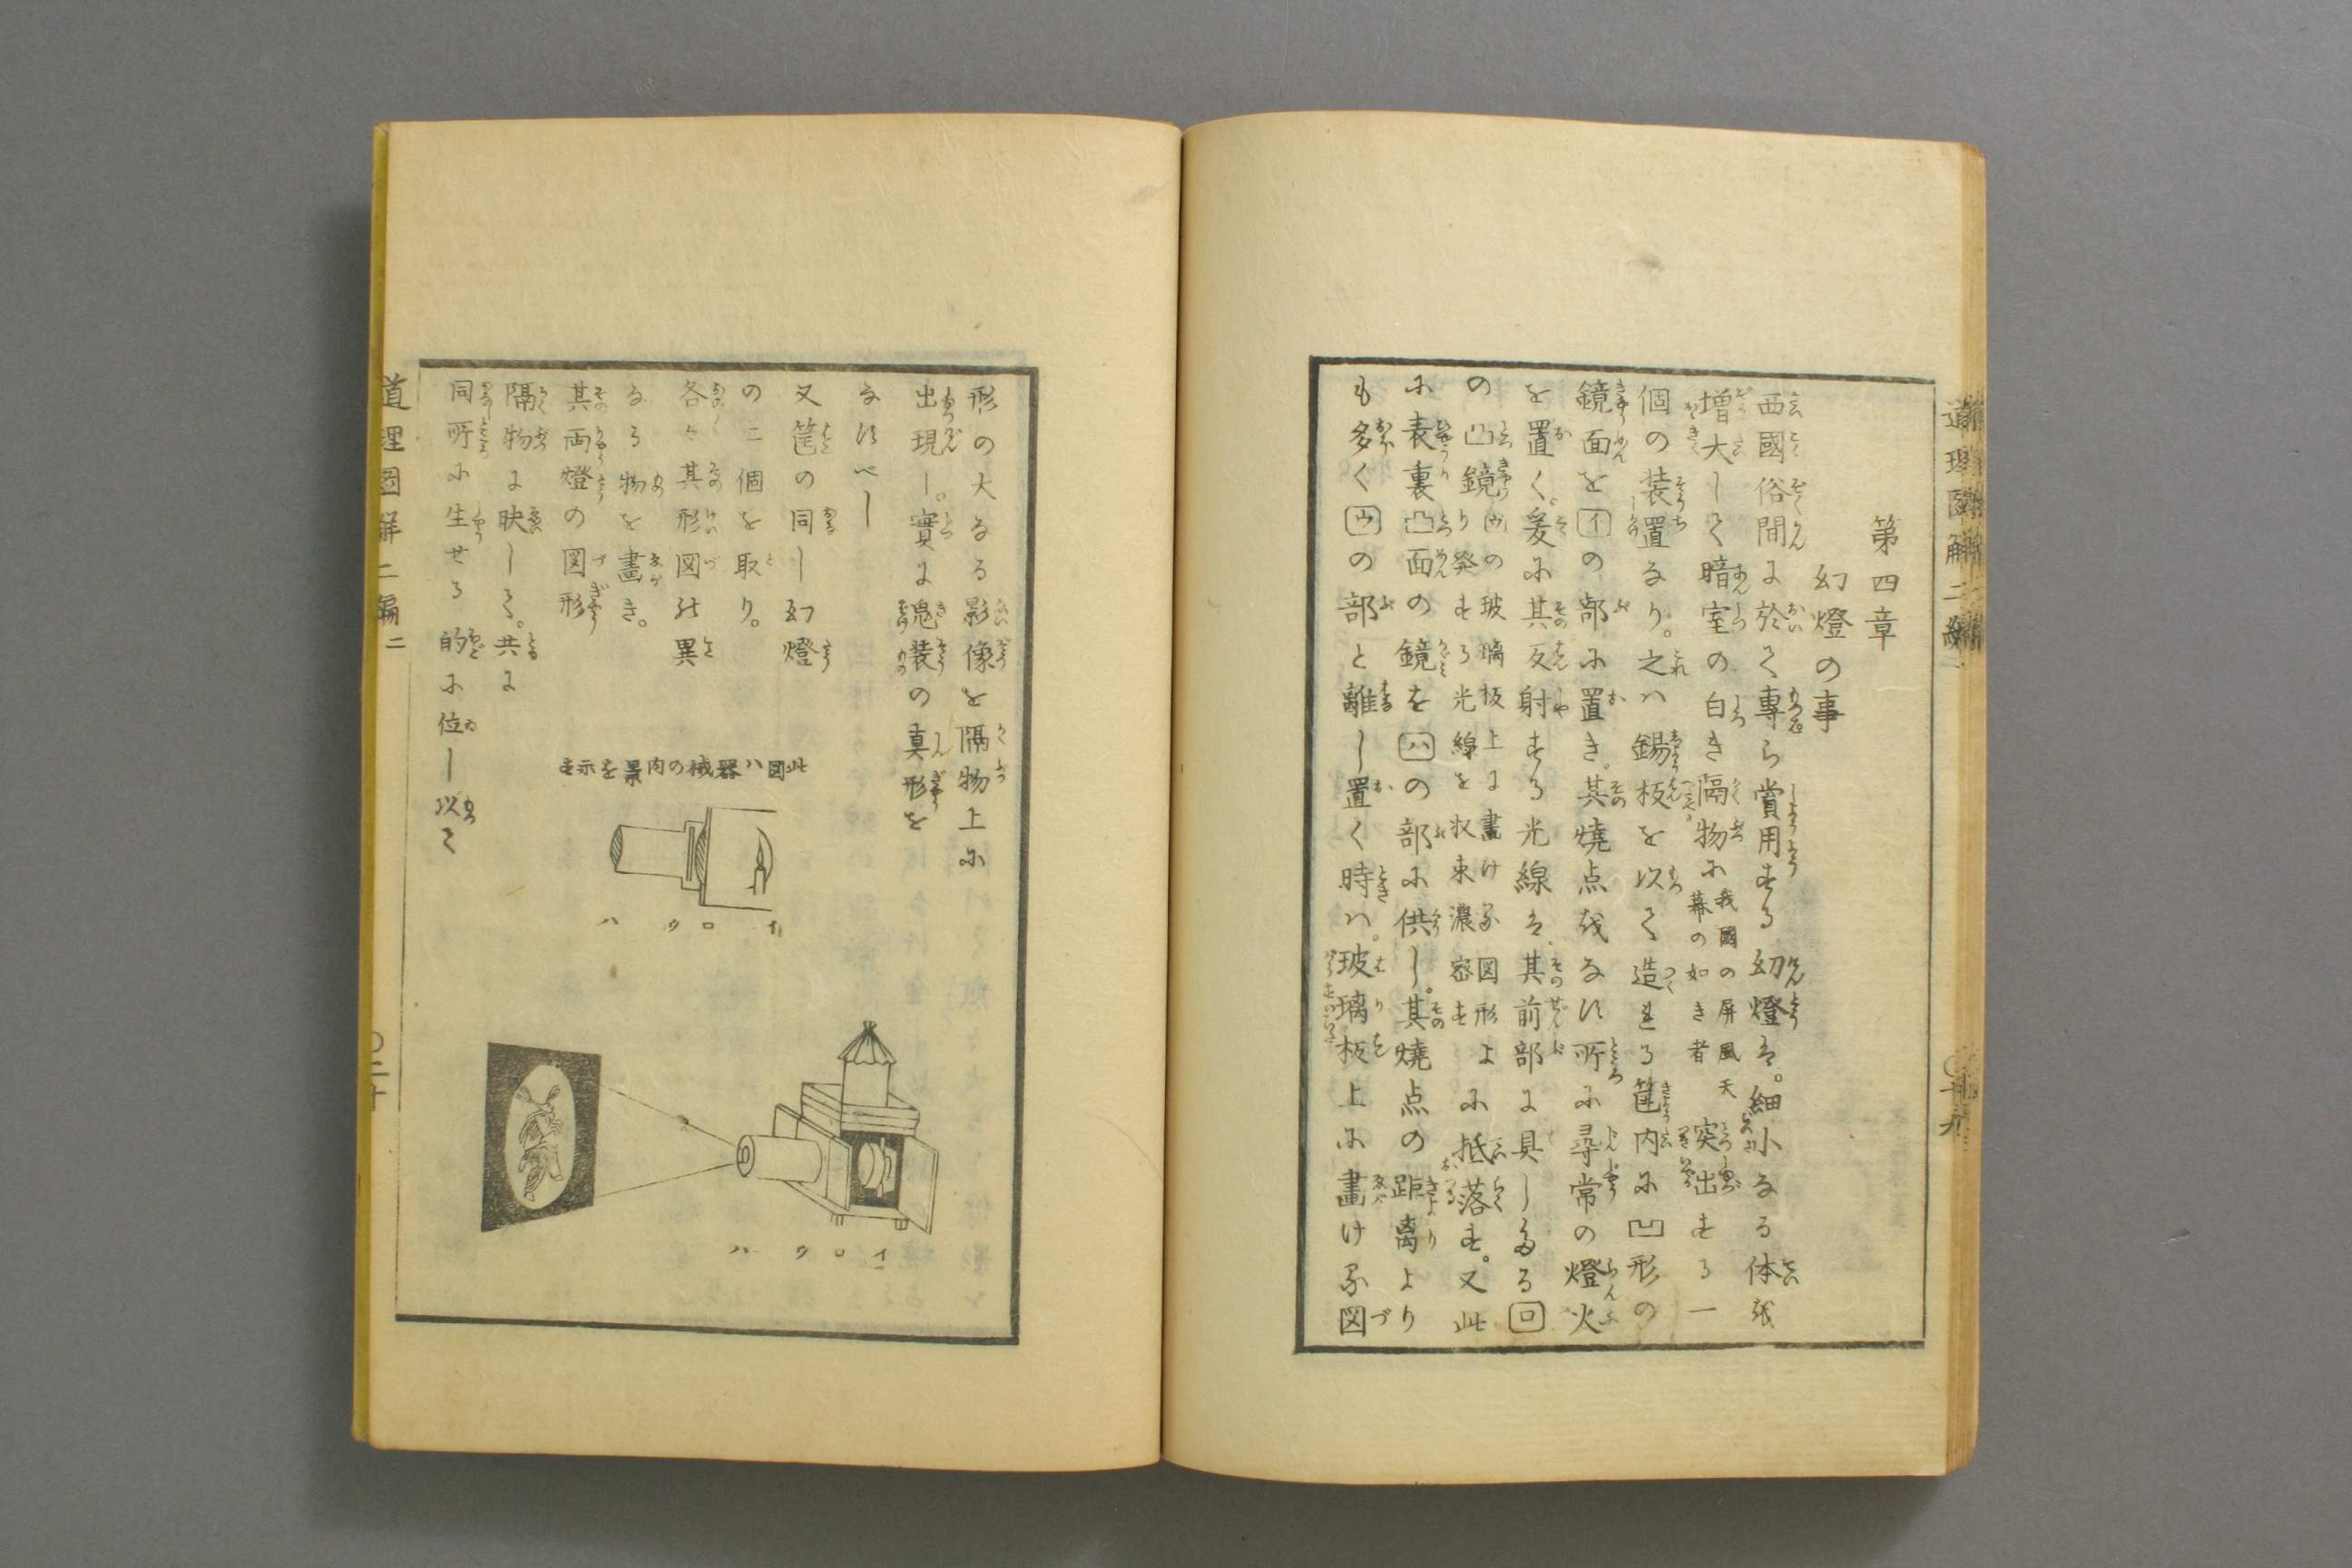 第四章
幻燈の事
西國俗間に於て專ら賞用する幻燈は。細小なる体を
増大して暗室の白き隔物に我國の屏風天幕の如き者突出する一
個の装置なり。之ハ錫板を以て造れる筐内に凹形の
鏡面をイの部に置き。其燒点をなす所に尋常の燈火
を置く。爰に其反射する光線は其前部に具したるロ
の凸鏡ウの玻璃板上に畫ける図形より発する光線を収束濃密すに抵落す。又此
に表裏凸面の鏡をハの部に供し。其燒点の距离より
も多くウの部と離し置く時ハ。玻璃板上に畫ける図
形の大なる影像を隔物上に
出現し。實に鬼装の真形を
なすべし
又筐の同し幻燈
の二個を取り。
各々其形図の異
なる物を畫き。
其両燈の図形
隔物に映して。共に
同所に生せる的に位し以て
此図ハ器械の内景を示す
イ
ロ
ウ
ハ
イ
ロ
ウ
ハ
道理図解二編二
〇二十
道理図解二編二